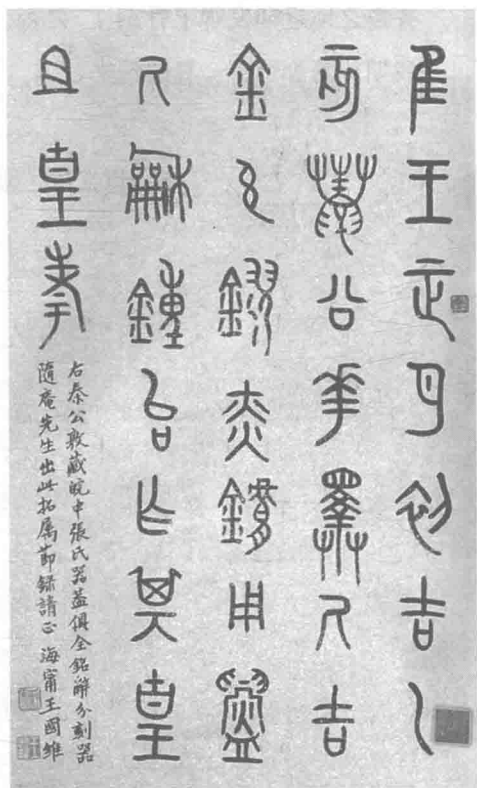 隹王正月初吉乙
亥鼄公華擇厥吉
金玄鏐赤用鑄
厥龢鐘台乍其皇
且皇考
右秦公敦藏皖中張氏器蓋俱全銘辭分刻器
隨庵先生出此拓属節録請正 海甯王國維